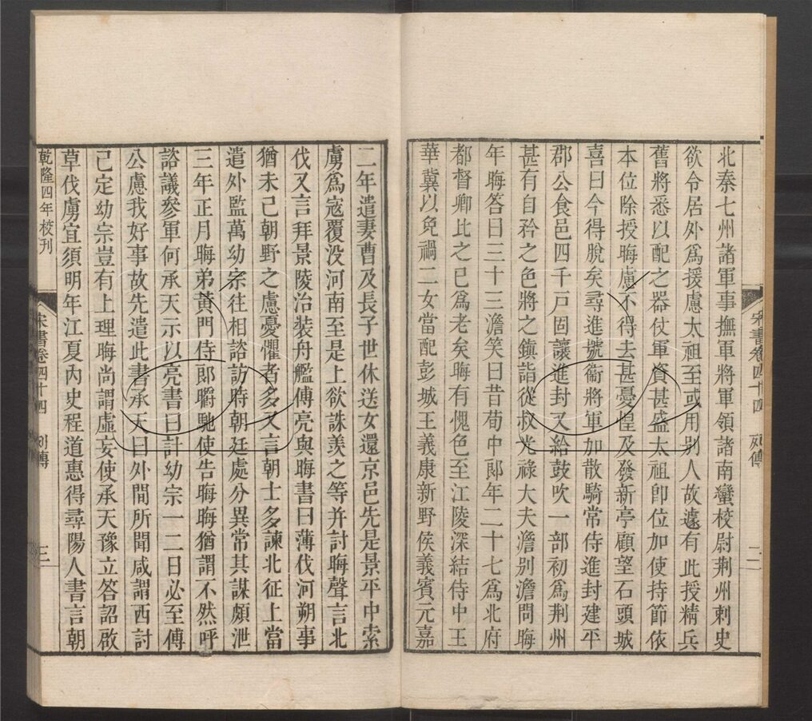 北秦七州諸軍事撫軍將軍領諸南蠻校尉荆州刺史
欲令居外爲援慮太祖至或用別人故遽有此授精兵
舊將悉以配之器仗軍資甚盛太祖卽位加使持節依
本位除授晦慮不得去甚憂惶及發新亭顧望石頭城
喜曰今得脫矣尋進號衞將軍加散騎常侍進封建平
郡公食邑四千戸固讓進封又給鼓吹一部初爲荆州
甚有自矜之色將之鎮詣從叔光祿大夫澹別澹問晦
年晦答曰三十三澹笑曰昔荀中郞年二十七爲北府
都督卿比之已爲老矣晦有愧色至江陵深結侍中王
華冀以免禍二女當配彭城王義康新野侯義賓元嘉
宋書卷四十四 列傳 二
二年遣妻曹及長子世休送女還京邑先是景平中索
虜爲寇覆没河南至是上欲誅羨之等并討晦聲言北
伐又言拜景陵治裝舟艦傅亮與晦書曰薄伐河朔事
猶未已朝野之慮憂懼者多又言朝士多諫北征上當
遣外監萬幼宗往相諮訪時朝廷處分異常其謀頗泄
三年正月晦弟黃門侍郞㬭馳使告晦晦猶謂不然呼
諮議參軍何承天示以亮書曰計幼宗一二日必至傅
公慮我好事故先遣此書承天曰外間所聞咸謂西討
已定幼宗豈有上理晦尚謂虛妄使承天豫立答詔啟
草伐虜宜須明年江夏內史程道惠得尋陽人書言朝
乾隆四年校刊
宋書卷四十四 列傳 三